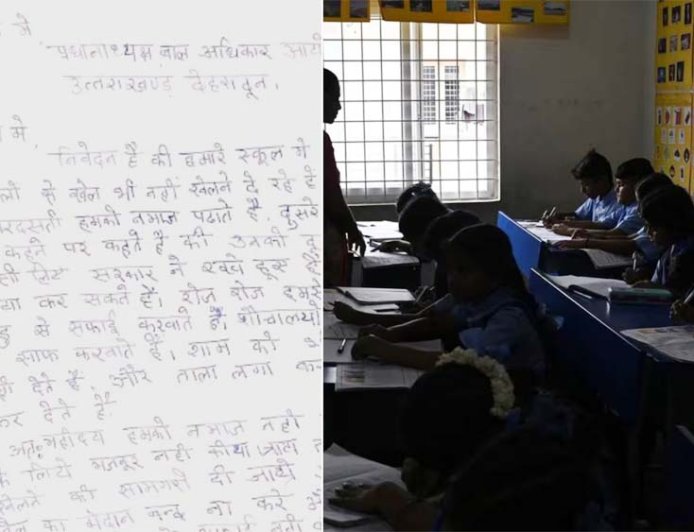 में
प्रधानाध्यक्ष बाल अधिकार आयो
उत्तराखण्ड देहरादून।
में,
निवेदन है की हमारे स्कूल में
लों से खेल भी नहीं खेलने दे रहे है
रदस्ती हमको नमाज पढाते है, दुसरे
कहने पर कहते है की उनको
सरकार ने रखे हुए
या कर सकते हैं। रोज रोज हमसे
से सफाई करवाते है। शौचालयों
साफ करवाते है। शाम को
देते है, और ताला लगा कर
कर देते है
अतः महोदय हमको नमाज नहीं
के लिये मजबूर नही कीया जाता
खेलने की सामग्री दी जाये
का मैदान बन्द ना करे